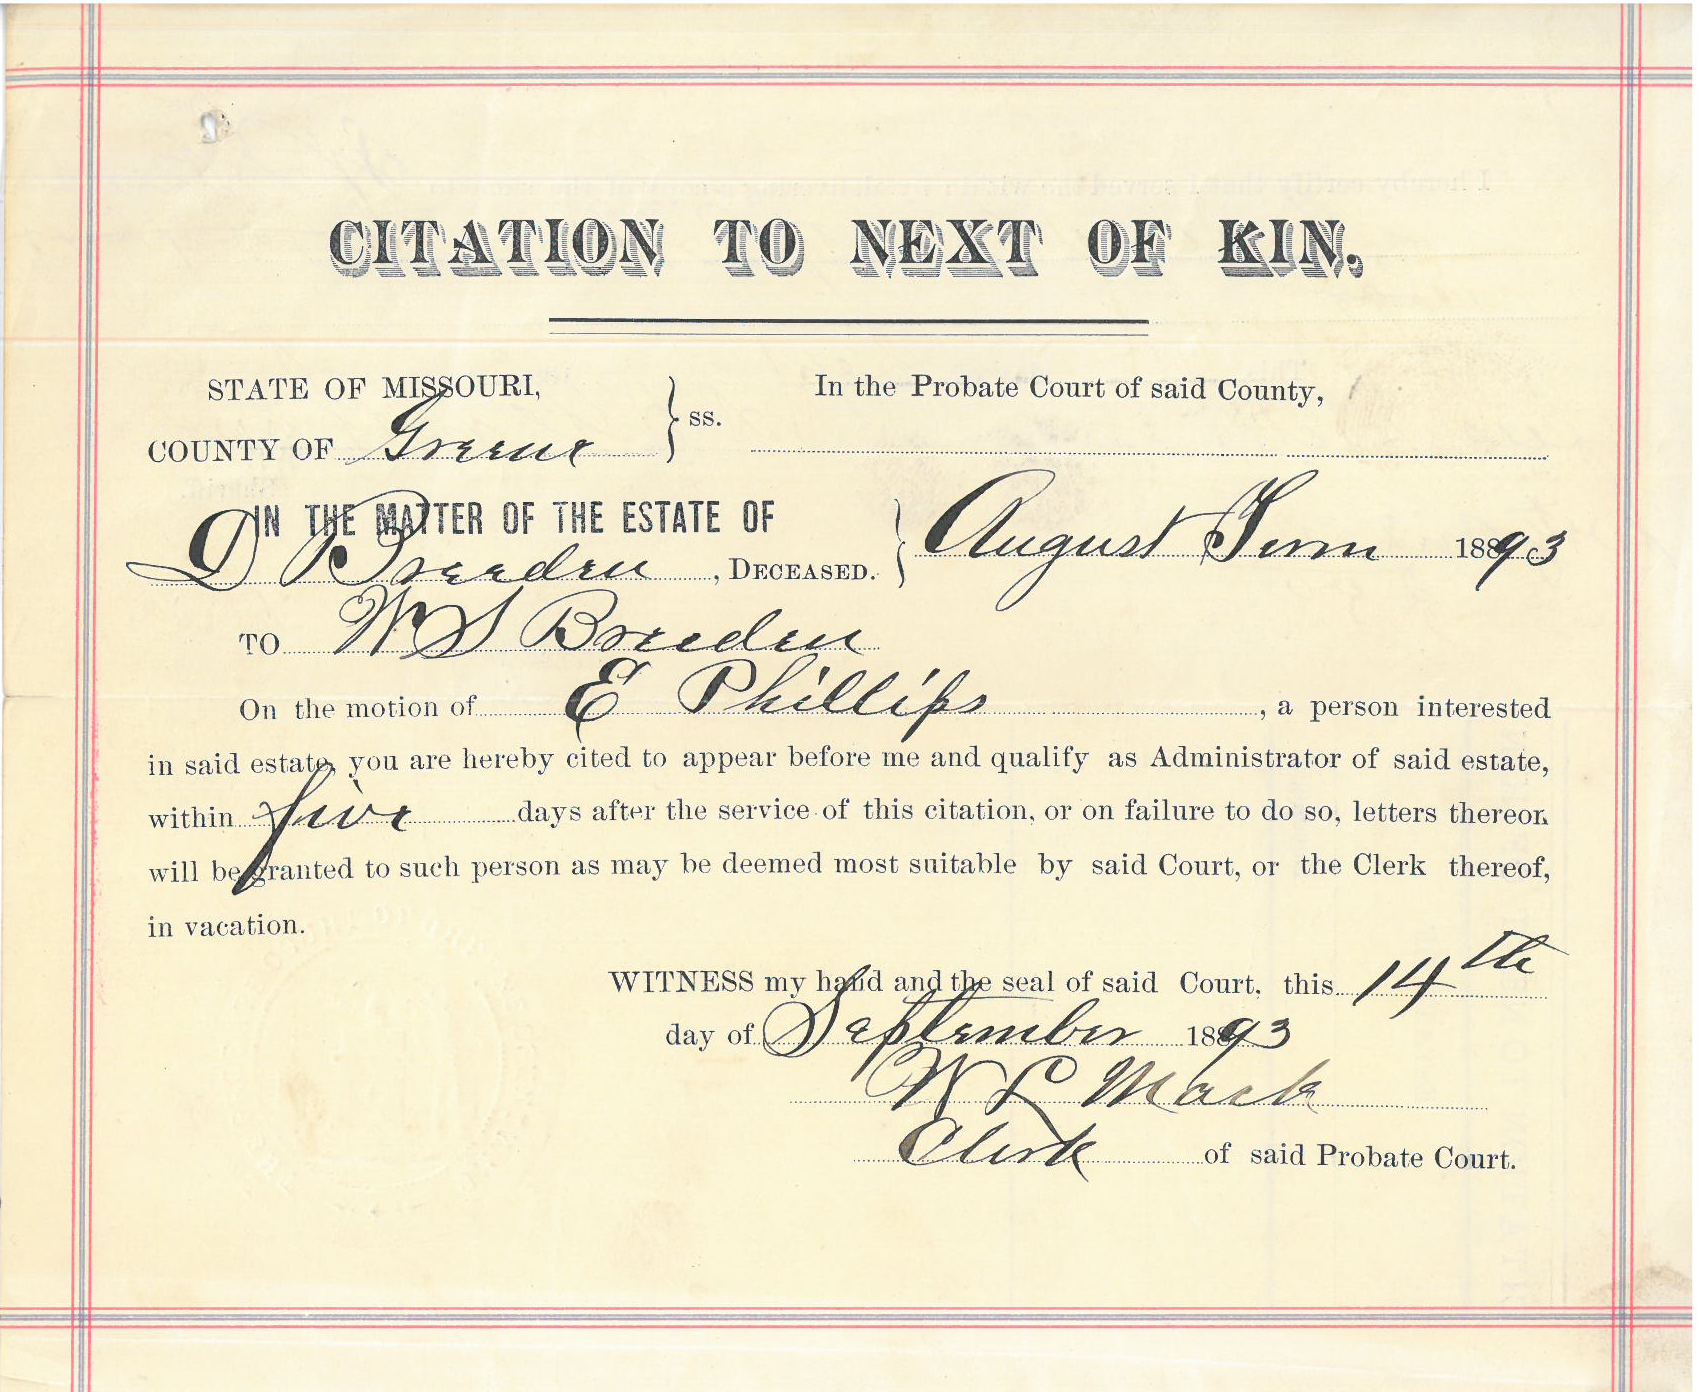 CITATION TO NEXT OF KIN.
STATE OF MISSOURI,
COUNTY OF Greene } ss.
In the Probate Court of said County,
IN THE MATTER OF THE ESTATE OF
D Breeden, DECEASED.
August Term 1893
TO W S Breeden
On the motion of E Phillips, a person interested
in said estate, you are hereby cited to appear before me and qualify as Administrator of said estate,
within five days after the service of this citation, or on failure to do so, letters thereon
will be granted to such person as may be deemed most suitable by said Court, or the Clerk thereof,
in vacation.
WITNESS my hand and the seal of said Court, this 14th
day of September 1893
W L Mack
Clerk of said Probate Court.